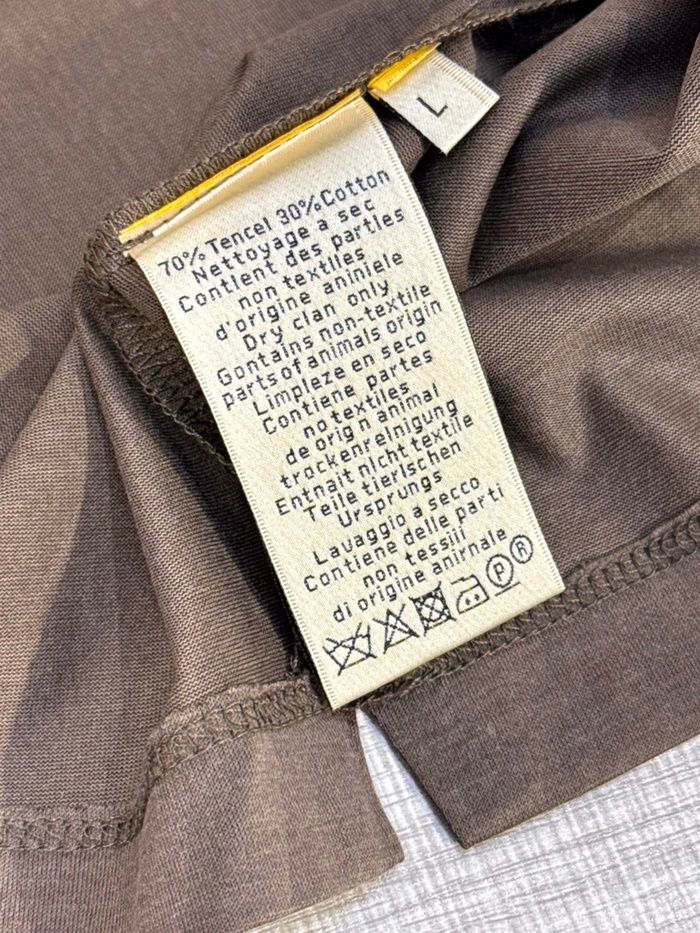 L
70% Tencel 30%Cotton
Nettoyage a sec
Contlent des partles
non textlles
d'orlgine aniniele
Dry clan only
Gontains non-textile
parts of animals origin
Limpleze en seco
Contiene partes
no textiles
de orig n animal
trockenreinigung
Entnait nlcht textile
Teile tierlschen
Ursprungs
Lavaggio a secco
Contiene delle parti
non tessiil
di origine anirnale
P R